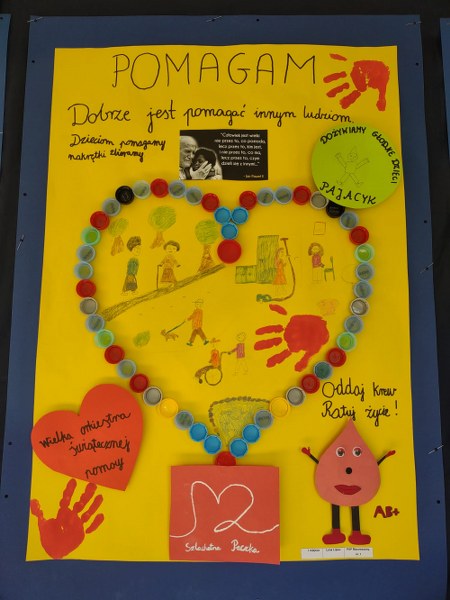 POMAGAM
Dobrze jest pomagać innym ludziom.
Dzieciom pomagamy
nakrętki zbieramy
"Człowiek jest wielki
nie przez to, co posiada,
lecz przez to, kim jest,
nie przez to, co ma,
lecz przez to, czym
dzieli się z innymi"
Jan Paweł II
DOŻYWIAMY GŁODNE DZIECI
PAJACYK
Oddaj krew
Ratuj życie!
Wielka orkiestra
świątecznej
pomocy
Szlachetna Paczka
AB+